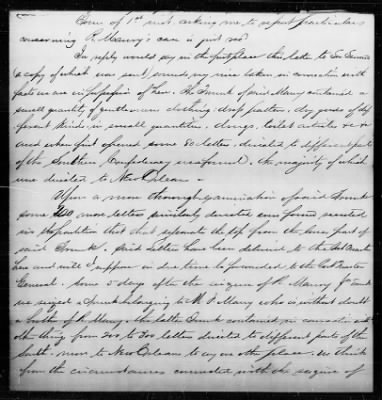 Yours of 1st inst. asking me to report particulars
concerning R. Maury's case is just rec'd
In reply would say in the first place the letter to
(a copy of which was sent) sounds very nice taken in connection with
facts we are in possession of here. The Trunk of said Maury contained a
small quantity of gentlemans clothing, dry goods of dif
ferent kinds in small quantities, drugs, toilet articles &c &c
and when first opened some 50 letters, directed to different parts
of the Southern Confederacy were found. The majority of which
were directed to New Orleans
Upon a more thorough examination of said Trunk
some 200 more letters similarly directed were found secreted
in the partition that that separates the top from the lower part of
said Trunk. Said Letters have been delivered to the
here and will I suppose in due time be forwarded to the
General. Some 5 days after the seizure of R. Maury's Trunk
we seized a Trunk belonging to M. F. Maury who is without doubt
a brother of R. Maury. The latter Trunk contained in connection with
other things from 200 to 300 letters directed to different parts of the
South. more to New Orleans than to any one other place. We think
from the circumstances connected with the seizure of